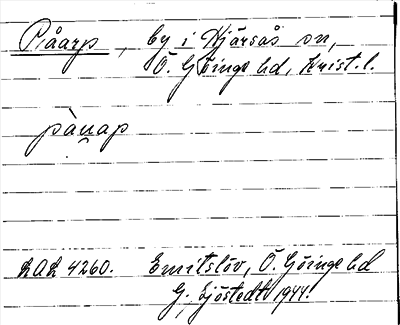 Plåarp, by i Hjärsås sn,
Ö. Göinge hd, Krist. l.
pàu̯ap
LAL 4260. Emitslöv, Ö. Göinge hd
G. Sjöstedt 1944.